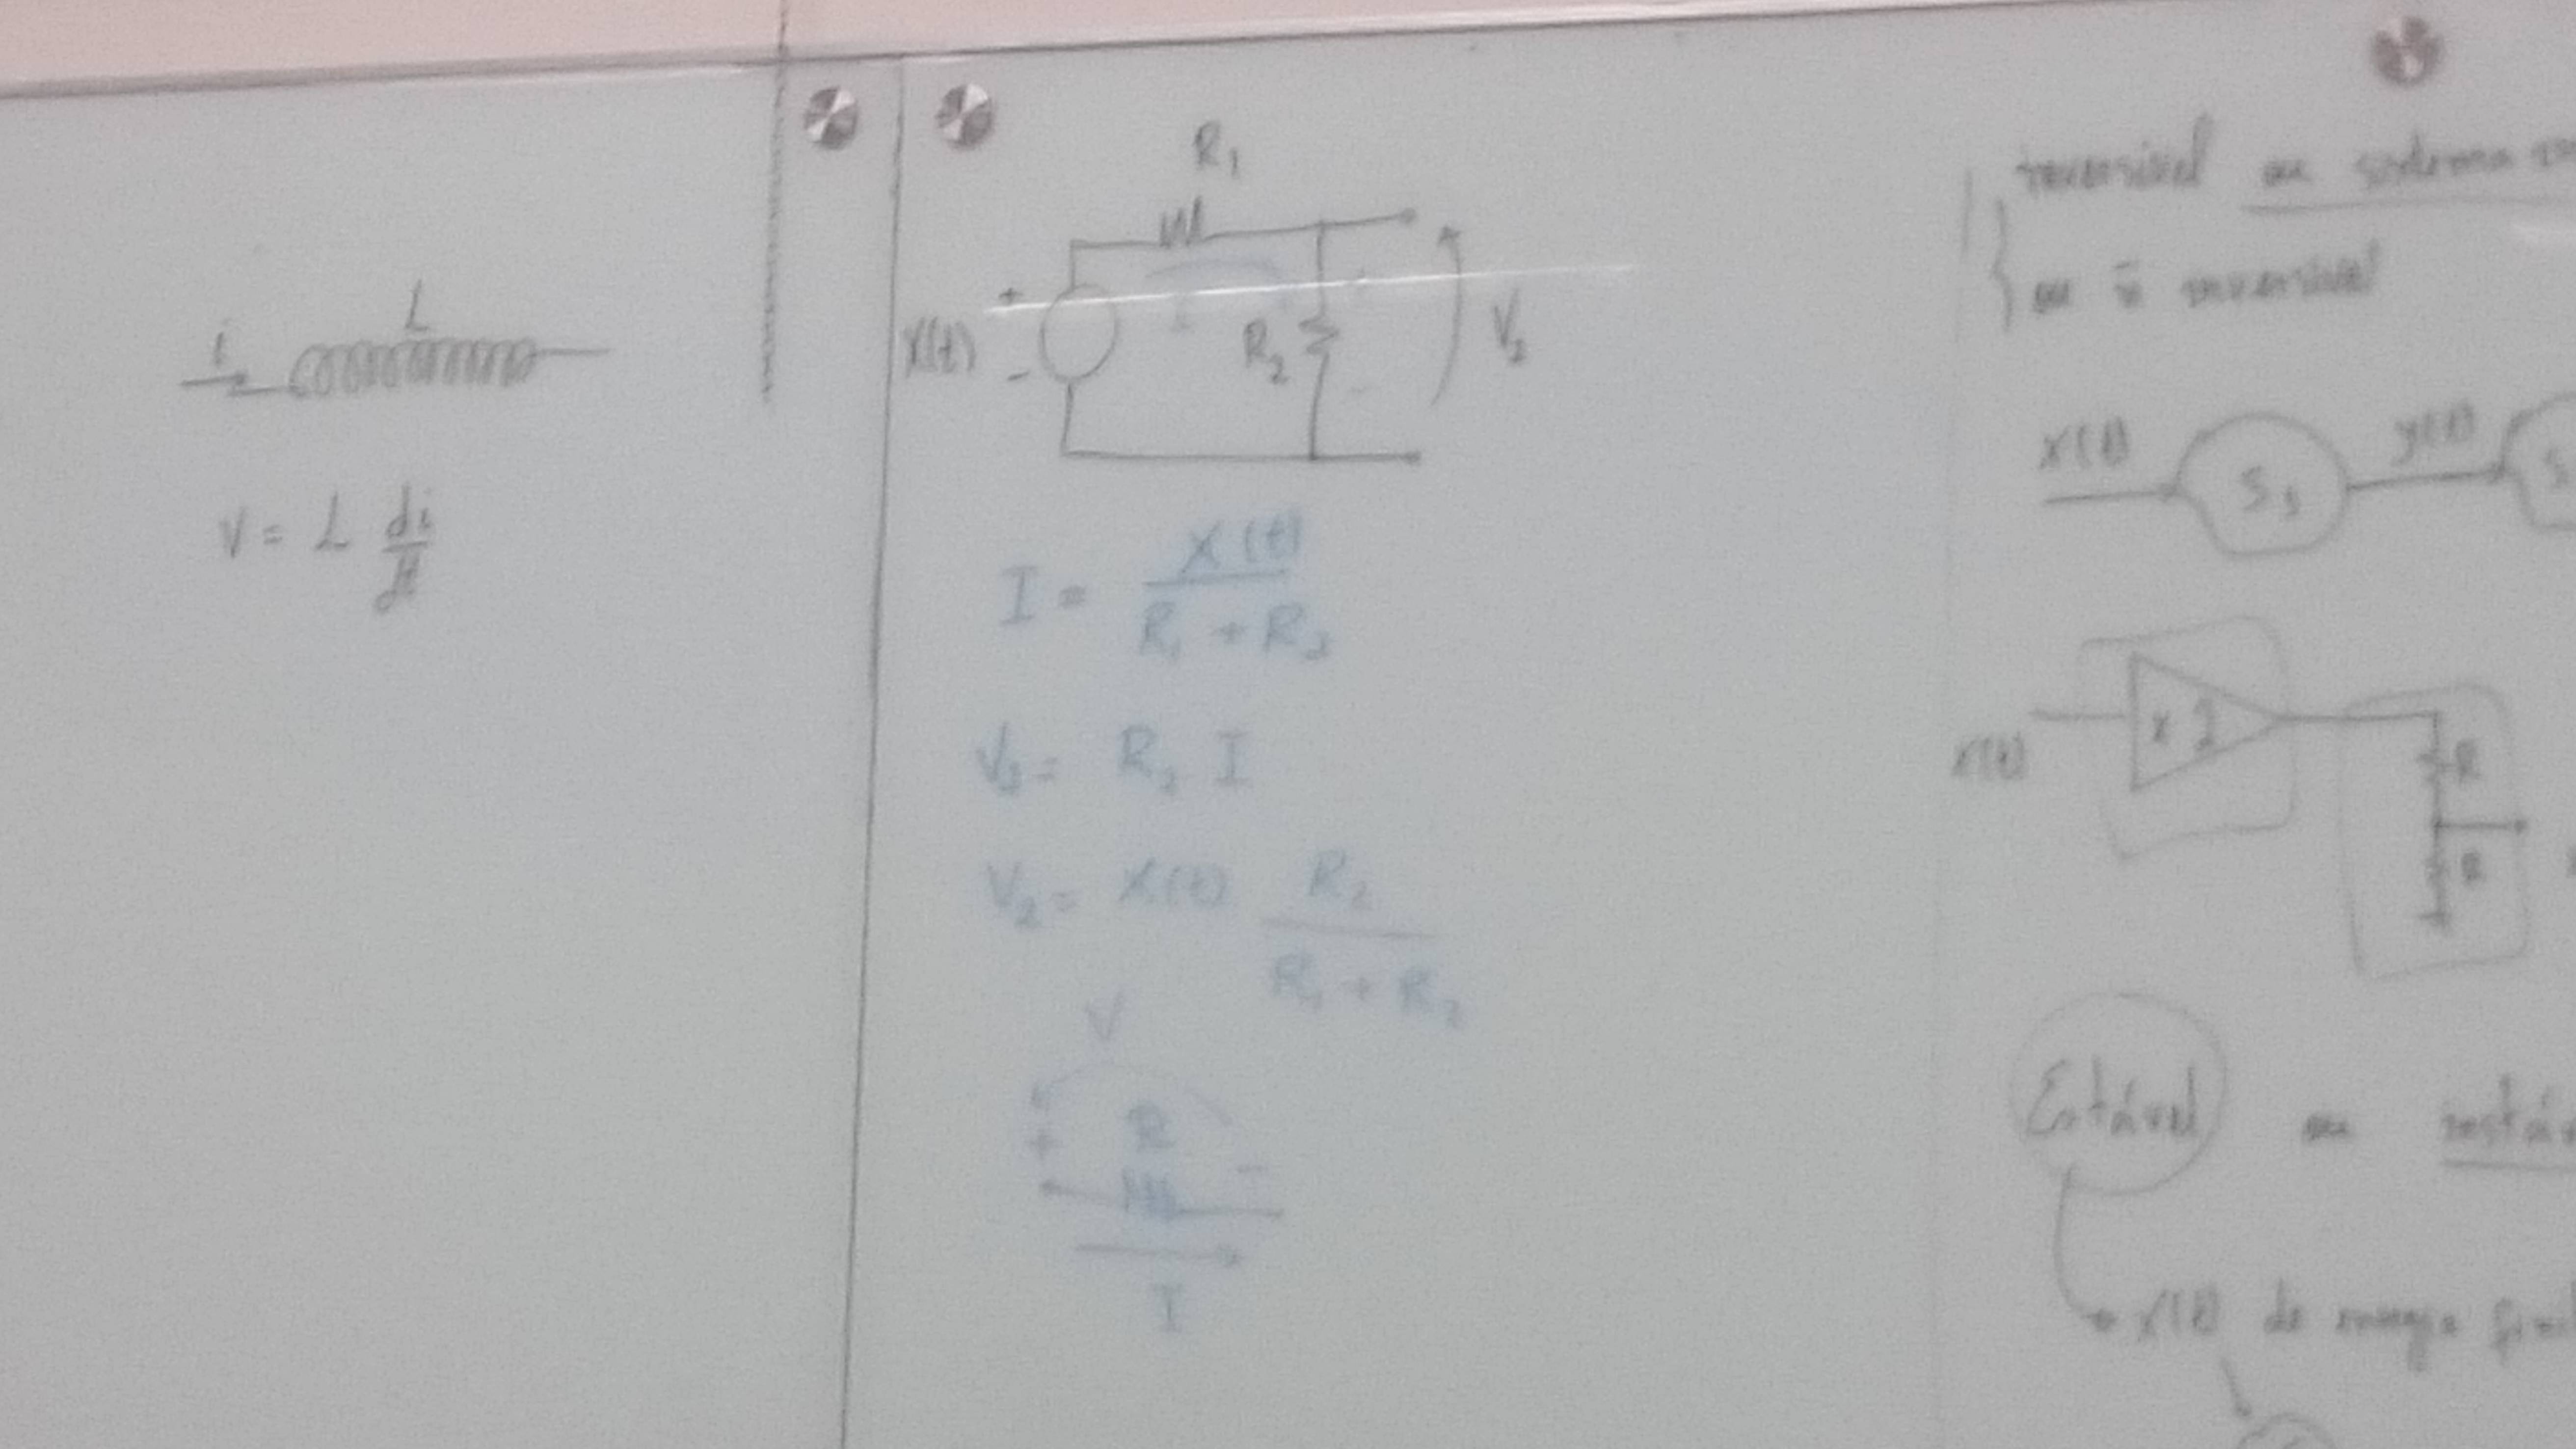 L
i
V = L di/dt
R1
+
X(t)
-
R2
V2
I = X(t) / R1 + R2
V2 = R2 I
V2 = X(t) R2 / R1 + R2
V
+ R -
I
inversível ou sistema
ou ñ inversível
x(t) S1 y(t)
x(t) x 2
R
R
Estável ou
x(t) de energia